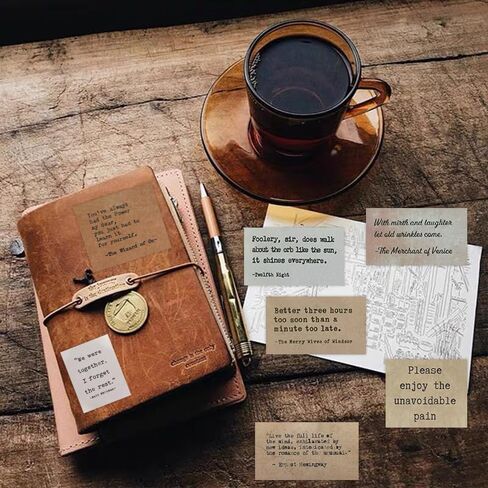 You've always
had the Power
my dear,
you just had to
learn it
for yourself.
-The Wizard of Oz
the journey
is the destination
"We were
together,
I forget
the rest."
-Walt Whitman-
Change is the only
constant
Foolery, sir, does walk
about the orb like the sun,
it shines everywhere.
-Twelfth Night
With mirth and laughter
let old wrinkles come.
-The Merchant of Venice
Better three hours
too soon than a
minute too late.
-The Merry Wives of Windsor
Please
enjoy the
unavoidable
pain
"Live the full life of
the mind, exhilarated by
new ideas, intoxicated by
the romance of the unusual."
- Ernest Hemingway